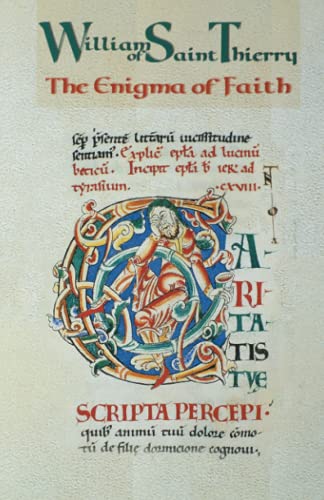 William of Saint Thierry
The Enigma of Faith
sēp p̄sente litt̄arū uicissitudine
sentiam'. Explic̄ ep̄la ad luciniū
beticū. Incipit ep̄la b̄ ier̄ ad
tyrasium. .cxviii.
CA-
RI-
TA-
TIS
TVE
SCRIPTA PERCEPI.
quib; animū tuū dolore cōmo-
tū de filie dormicione cognoui,